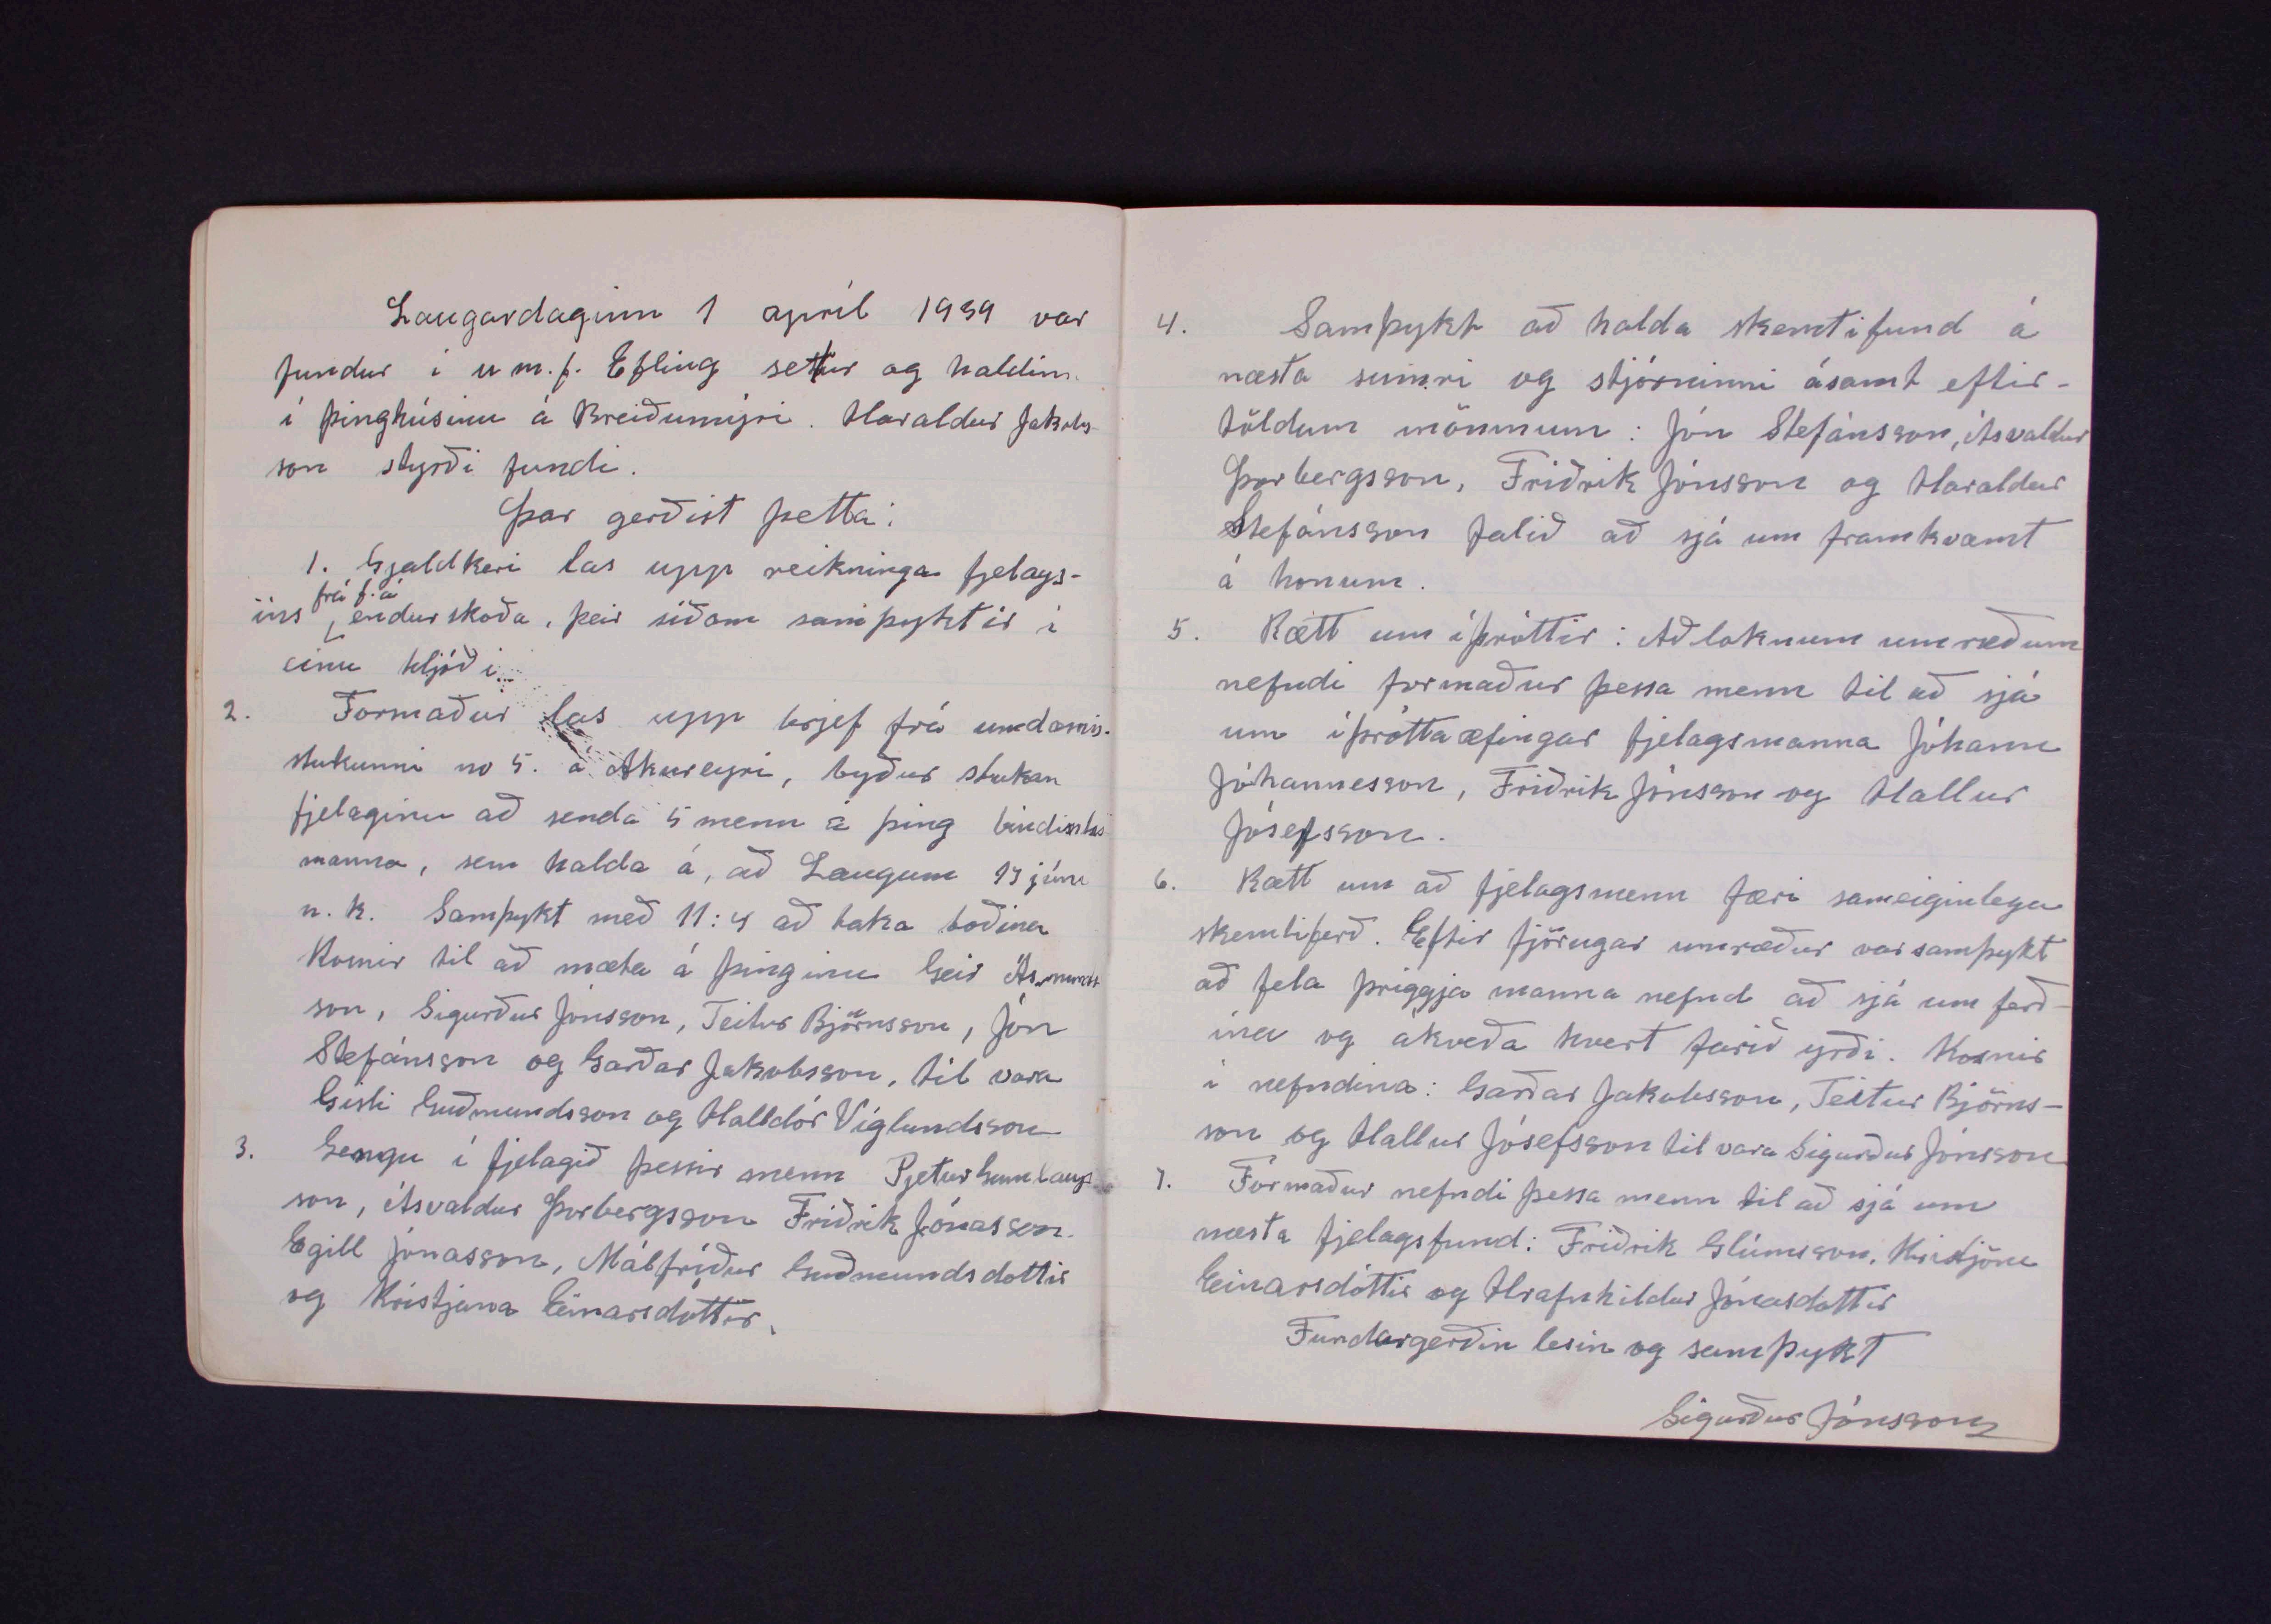 Laugardaginn 1 apríl 1939 var
fundur í u m. f. Efling settur og haldinn
í þinghúsinu á Breiðumýri. Haraldur Jakobs-
son styrði fundi.
Þar gerðist þetta:
1. Gjaldkeri las upp reikninga fjelags-
frá f. á
ins endurskoða, þeir síðan samþyktir í
einu hljóði.
2. Formaður las upp brjef frá umdæmis-
stukunni no 5. á Akureyri, byður stukan
fjelaginu að senda 5 menn á þing bindindis
manna, sem halda á, að Laugum júní
n. k. Samþykt með 11:4 að taka boðinu
Kosnir til að mæta á þinginu Geir Ásmunds
son, Sigurður Jónsson, Teitur Björnsson, Jón
Stefánsson og Garðar Jakobsson, til vara
Gisli Guðmundsson og Halldór Víglundsson
3. Gengu í fjelagið þessir menn Pjetur Gunnlaugs
son, Ásvaldur Þorbergsson Friðrik Jónasson.
Egill Jónasson, Málfríður Guðmundsdottir
og Kristjana Einarsdóttir.
4. Samþykt að halda skemtifund á
næsta sumri og stjórninni ásamt eftir-
töldum mönnum: Jón Stefánsson, Ásvaldur
Þorbergsson, Friðrik Jónsson og Haraldur
Stefánsson falið að sjá um framkvæmt
á honum.
5. Rætt um íþróttir: Að loknum umræðum
nefndi formaður þessa menn til að sjá
um íþróttaæfingar fjelagsmanna Jóhann
Jóhannesson, Friðrik Jónsson og Hallur
Jósefsson.
6. Rætt um að fjelagsmenn færi sameiginlega
skemtiferð. Eftir fjörugar umræður var samþykt
að fela þriggja manna nefnd að sjá um ferð-
ina og ákveða hvert farið yrði. Kosnir
í nefndina: Garðar Jakobsson, Teitur Björns-
son og Hallur Jósefsson til vara Sigurður Jónsson
7. Formaður nefndi þessa menn til að sjá um
næsta fjelagsfund: Friðrik Glúmsson, Kristjönu
Einarsdóttir og Hrafnhildur Jónasdottir
Fundargerðin lesin og samþykt
Sigurður Jónsson